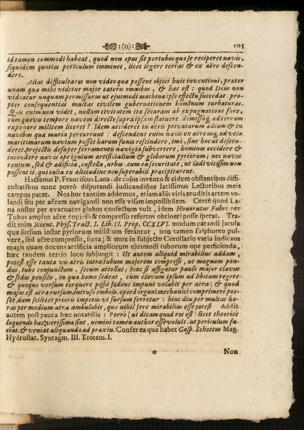 (0) 105
id tamen commodi habeat, quod non opus sit portubus quo se recipere navis,
siquidem quoties periculum imminet, licet legere terras & ex aëre descen-
dere.
Alias difficultates non video quæ possent objici huic inventioni, præter
unam quæ mihi videtur major cæteris omnibus, & hæc est: quod Deus non
videatur unquam permissurus ut ejusmodi machina ipso effectu succedat, pro-
pter consequentias multas civilem gubernationem hominum turbaturas.
Quis enim non videt, nullam civitatem ita securam ab expugnatione fore,
cum quovis tempore navem directe supra ipsam statuere, dimissoque ad terram
exponere militem liceret? Idem accideret in aëreis privatarum ædium & in
navibus quæ maria percurrunt: descendens enim navis ex aëre
maritimarum navium posset harum funes rescindere, imò, sine hoc ut descen-
deret, projectis deorsum ferramentis navigia subvertere, homines occidere &
incendere naves igne artificiali & globorum; nec naves
tantùm, sed & ædificia, castra, & urbes, cum securitate, ut
possent ii, qui talia ex altitudine non superabili præcipitarent.
Hactenus P. Franciscus Lana: de cujus invento & eidem obstantibus diffi-
cultatibus nunc porrò disputandi judicandique latissimus Lectoribus meis
campus patet. Nos hoc tantùm addemus, etiam aliis viris eruditis artem vo-
landi seu per aërem navigandi non esse visam impossibilem. Certè quod La-
na noster per evacuatos globos confectum vult, idem Honoratus Fabri per
Tubos amplos aëre copioso & compresso refertos obtineri posse sperat. Tra-
dit enim
quæ sursum instar pyrii militum ferantur, tum tamen sulphureo pulve-
re, sed aëre compresso, juxta; & mox in subjecto Corollario variis indicans
magis quàm docens artificia amplorum ejusmodi tuborum ope perficienda,
hæc tandem tertio loco subjungit: Ut autem aliquid mirabilius addam,
potest esse tanta vis aëris intra tubum majorem compressi, ut magnum pon-
dus, tubo conjunctum, secum attollat; hinc si affigatur paulò major clavus
& suspensio, in qua homo sedeat, cum clavum ipsum ad libitum regere
& quoquo versum torquere possit sedens impunè volabit per aëra; & quod
majus est aëra sursum intrusum tubulis, operâ organi mechanici comprimere pos-
set, dum scilicet prioris impetus vis sursum ferretur: hinc diu per multas ho-
ras per medium aëra ambularet, quo nihil ferè mirabilius esse potest. Addit
autem post pauca hæc notabilia: Porrò (ut dicam quod res est) licet theoricè
loquendo hæc verissima sint, nemini tamen author esse volui, ut periculum fa-
ciat, & veniat aliquando ad praxin. Conferatur quæ habet Gasp. Schottus Mag.
Hydrostat. Syntagm. III. Erotem. I.
o Non